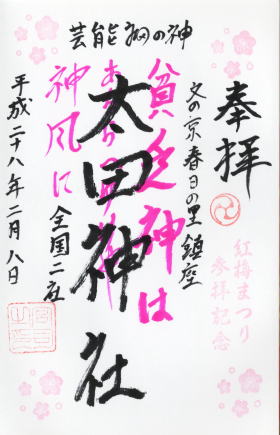 奉拝
文の京 春日の里 鎮座
紅梅まつり
参拝記念
芸能の神
太田神社
貧乏神は
神風に
全国二社
平成二十八年二月八日